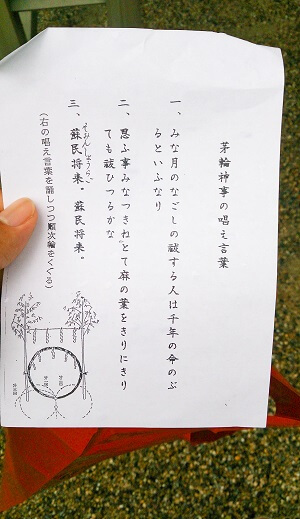 茅輪神事の唱え言葉
一、みな月のなごしの祓する人は千年の命のぶ
るといふなり
二、思ふ事みなつきねとて麻の葉をきりにきり
ても祓ひつるかな
三、蘇民将来。蘇民将来。
そみんしょうらい
(右の唱え言葉を誦しつつ順次輪をくぐる)